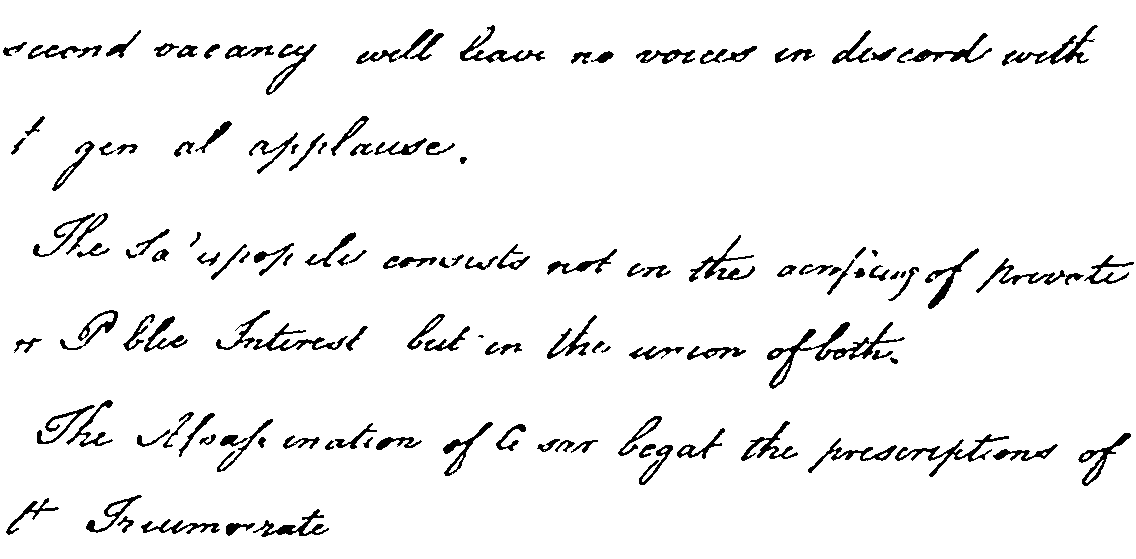 second vacancy will leave no voices in discord with
general applause.
The populi consists not in the of private
or Public Interest but in the union of both.
The Assassination of Cesar begat the prescriptions of
the Triumvirate